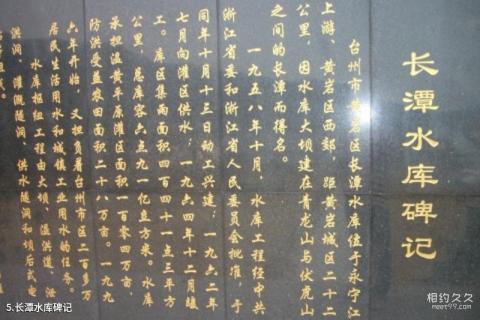 长潭水库碑记
台州市黄岩区长潭水库位于永宁江
上游、黄岩区西郊，距黄岩城区二十二
公里，因水库大坝建在青龙山与伏虎山
之间的长潭而得名。
一九五八年十月，水库工程经中共
浙江省委和浙江省人民委员会批准，于
同年十月十三日动工兴建；一九六二年
七月向灌区供水；一九六四年十二月竣
工。库区集雨面积四百四十一点三平方
公里，总库容六点九一亿立方米。水库
承担温黄平原灌区面积一百零四万亩、
防洪受益农田面积二十八万亩。一九九
六年开始，又担负着台州市区二百多万
居民生活用水和城镇工业用水的任务。
水库枢纽工程由大坝、溢洪道、泄
洪洞、灌溉隧洞、供水隧洞和坝后式电
5.长潭水库碑记
相约久久
www.meet99.com